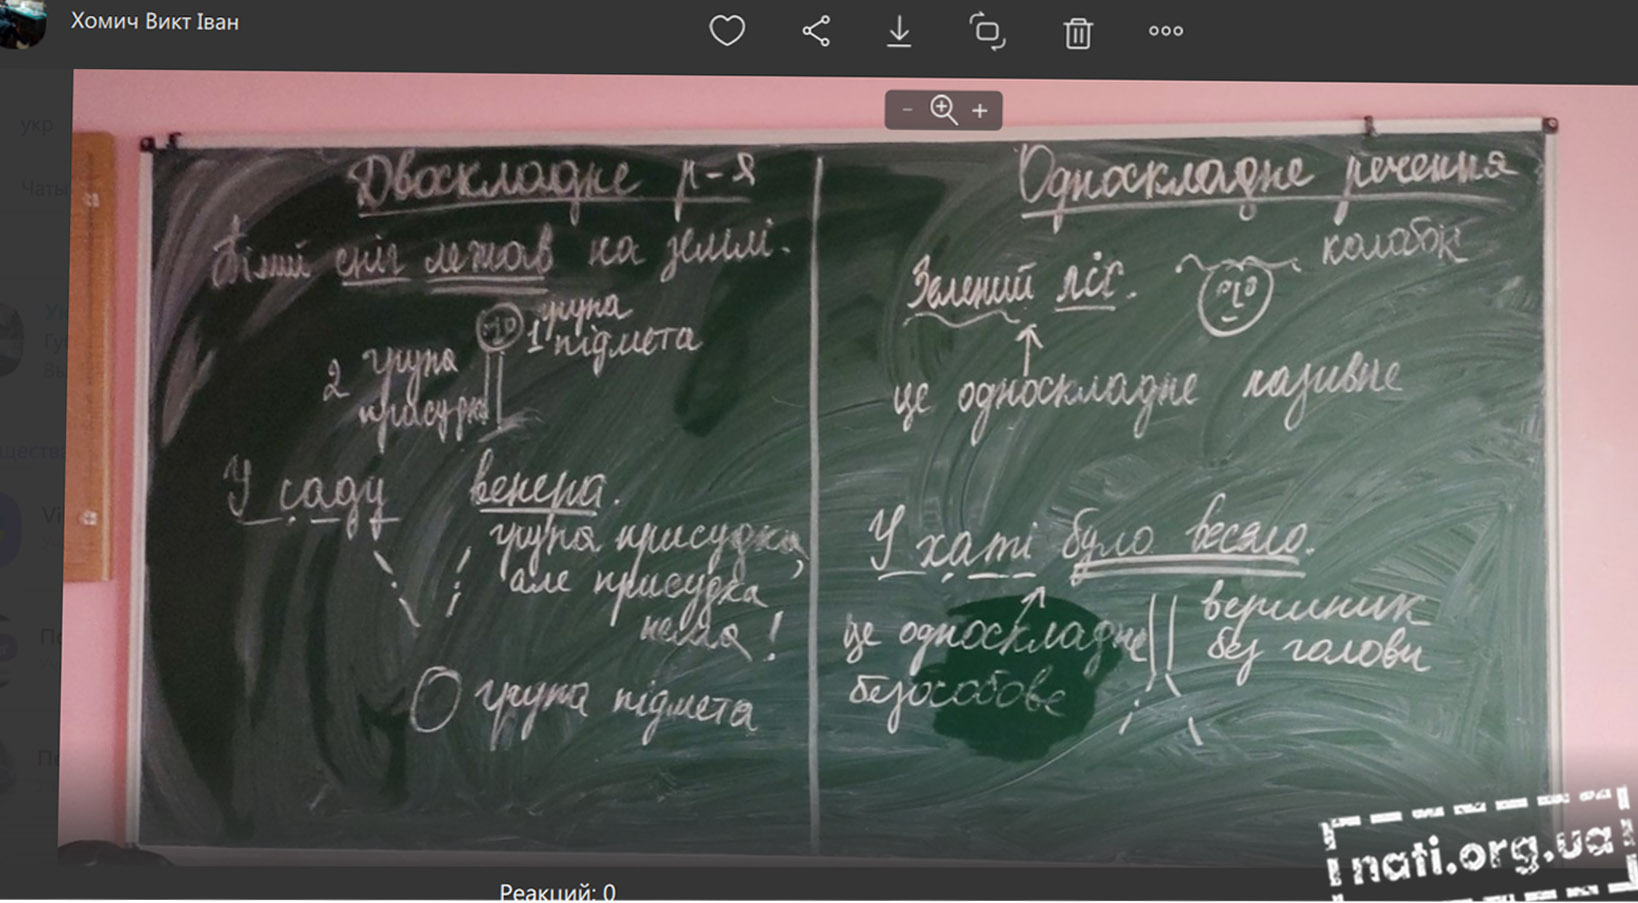 Хомич Викт Іван
укр
Чаты
Двоскладне р-я
Білий сніг лежав на землі.
1 група
підмета
2 група
присудка
У саду венера.
група присудка,
але присудка
нема!
група підмета
Односкладне речення
колобок
Зелений ліс.
це односкладне називне
У хаті було весяло.
це односкладне
безособове
вершник
без голови
nati.org.ua
Реакций: 0